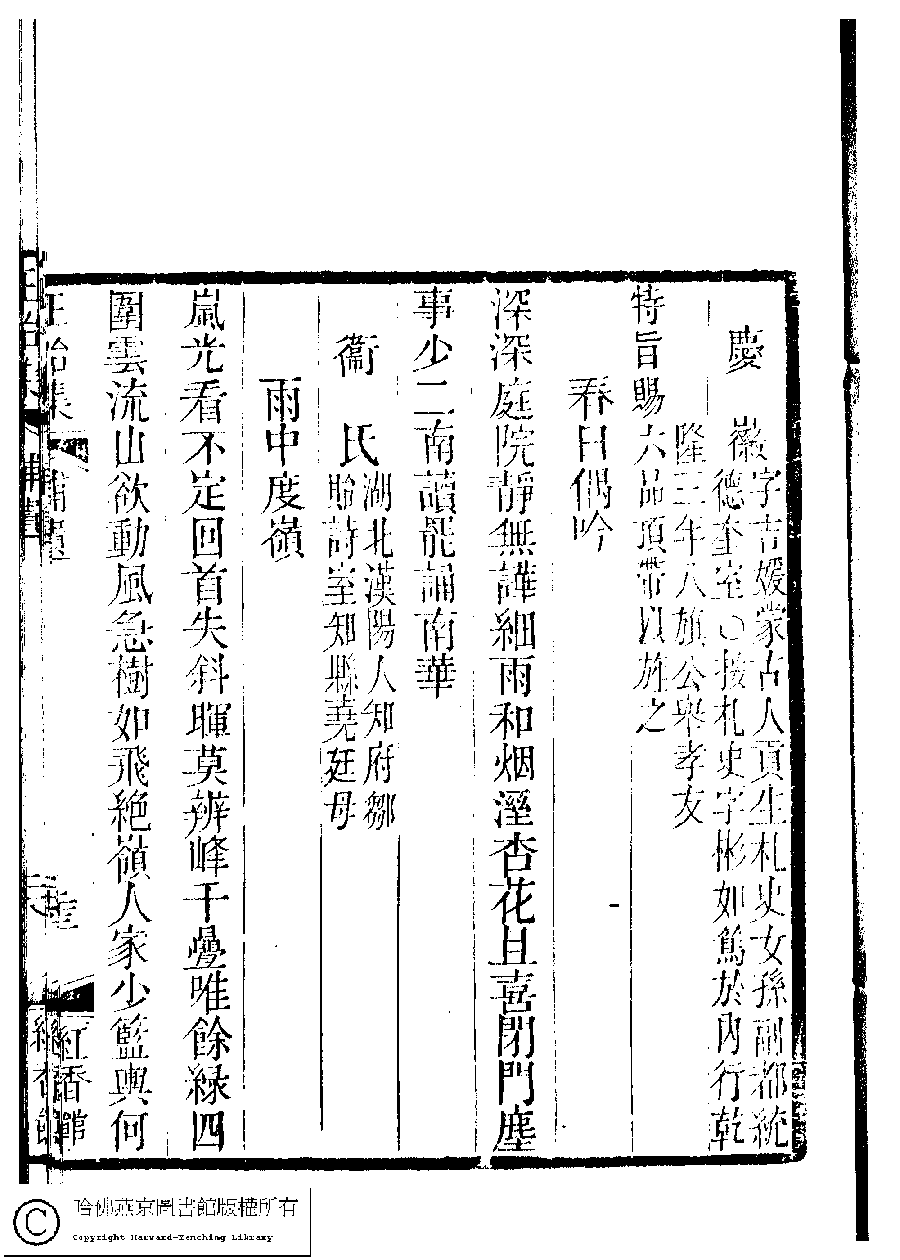 慶徽
字吉媛蒙古人貢生札史女孫副都統
德奎室○按札史字彬如篤於內行乾
隆三年八旗公舉孝友
特旨賜六品頂帶以旌之
春日偶吟
深深庭院靜無譁細雨和烟溼杏花且喜閉門塵
事少二南讀罷誦南華
衞氏
湖北漢陽人知府鄒
貽詩室知縣堯廷母
雨中度嶺
嵐光看不定回首失斜暉莫辨峰千疊唯餘綠四
圍雲流山欲動風急樹如飛絕嶺人家少籃輿何
正始集
補遺
紅香館
哈佛燕京圖書館版權所有
Copyright Harvard-Yenching Library